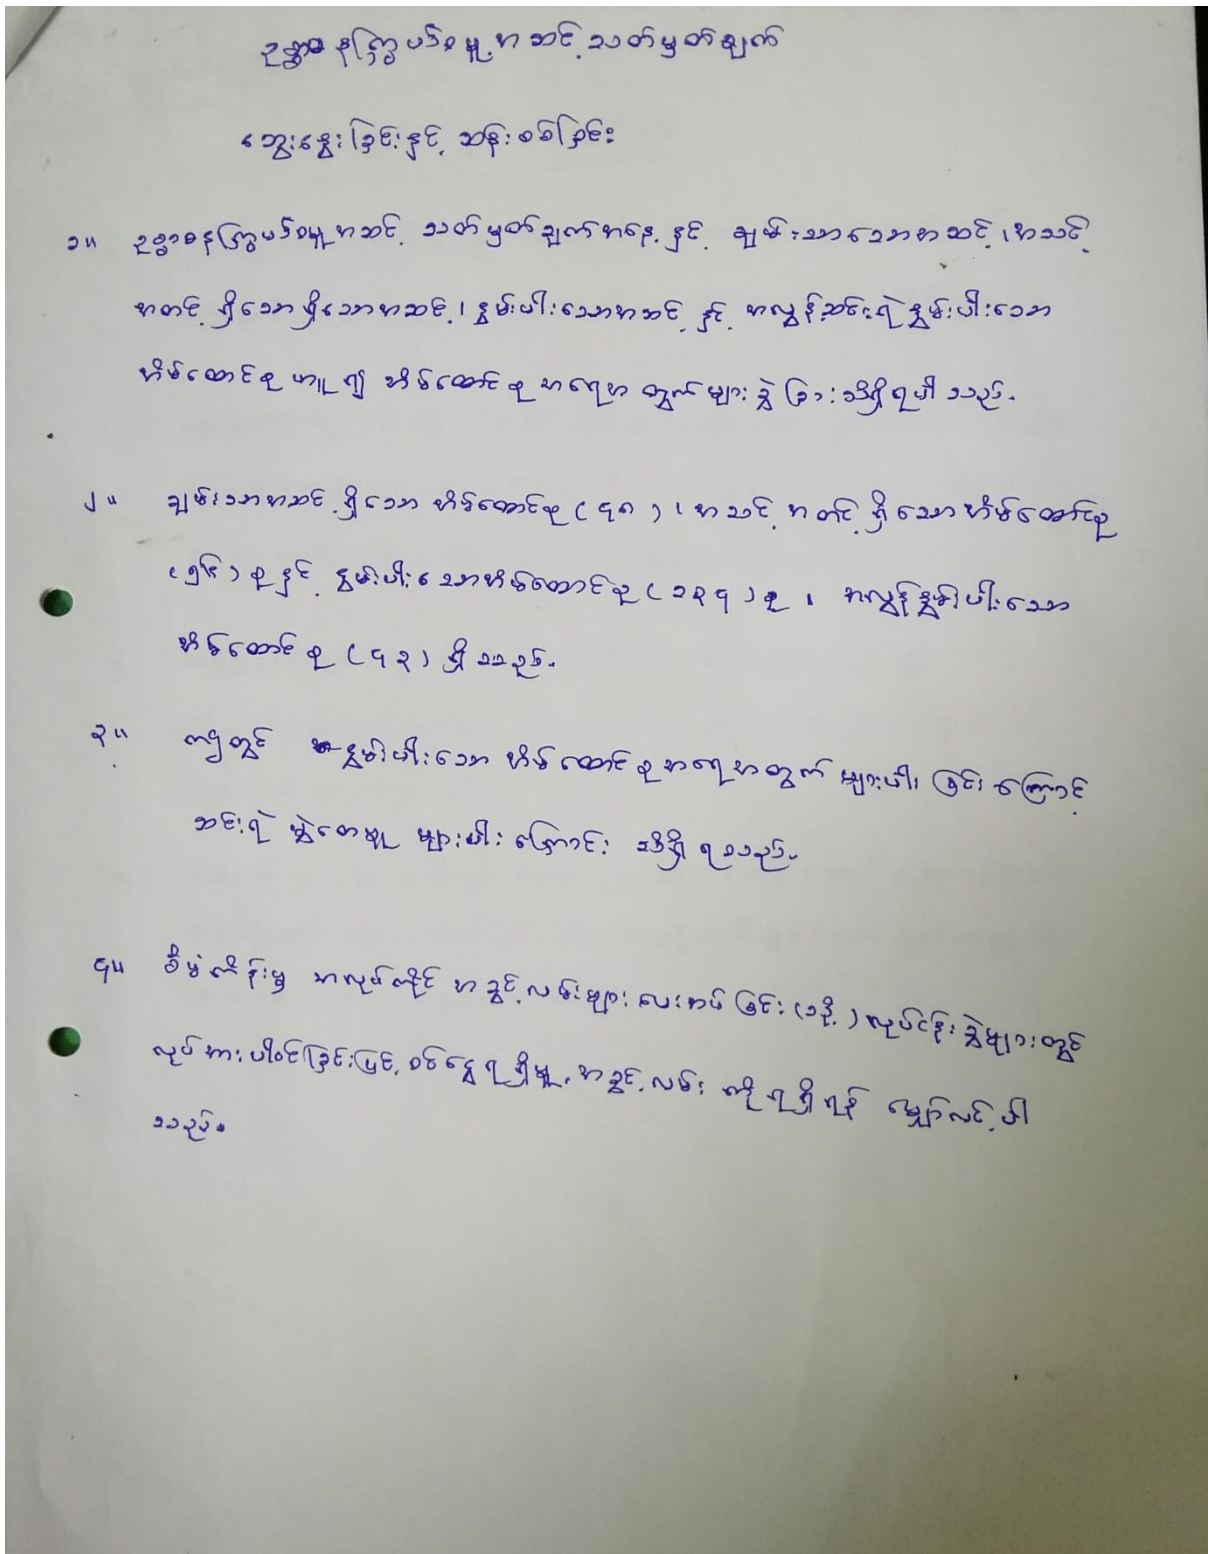 ဥစ္စာဓနကြွယ်ဝမှု အဆင့်သတ်မှတ်ချက်
ဆွေးနွေးခြင်းနှင့် ဆန်းစစ်ခြင်း
၁။ ဥစ္စာဓနကြွယ်ဝမှုအဆင့် သတ်မှတ်ချက်အနေ နှင့် ချမ်းသာသောအဆင့်၊ အသင့်
အတင့် ရှိသောရှိသောအဆင့်၊ နွမ်းပါးသောအဆင့် နှင့် အလွန်ဆင်းရဲ နွမ်းပါးသော
အိမ်ထောင်စု ဟူ၍ အိမ်ထောင်စု အရေအတွက်များ ခွဲခြားသိရှိရပါသည်.
၂။ ချမ်းသာအဆင့် ရှိသော အိမ်ထောင်စု (၄၈)၊ အသင့် အတင့် ရှိသောအိမ်ထောင်စု
(၅၆) စု နှင့် နွမ်းပါးသောအိမ်ထောင်စု (၁၃၄) စု ၊ အလွန်နွမ်းပါးသော
အိမ်ထောင်စု (၄၃) ရှိသည်.
၃။ ဤတွင် နွမ်းပါးသော အိမ်ထောင်စုအရေအတွက် များပါး ခြင်း ကြောင့်
ဆင်းရဲ မွဲတေမှု များပါး ကြောင်း သိရှိ ရသည်.
၄။ စီမံကိန်းမှ အလုပ်အကိုင် အခွင့်လမ်းများ ပေးအပ် ခြင်း (သို့) လုပ်ငန်းခွဲများတွင်
လုပ်အားပါဝင်ခြင်းဖြင့် ဝင်ငွေရရှိမှု အခွင့်လမ်း ကို ရရှိရန် မျှော်လင့်ပါ
သည်.